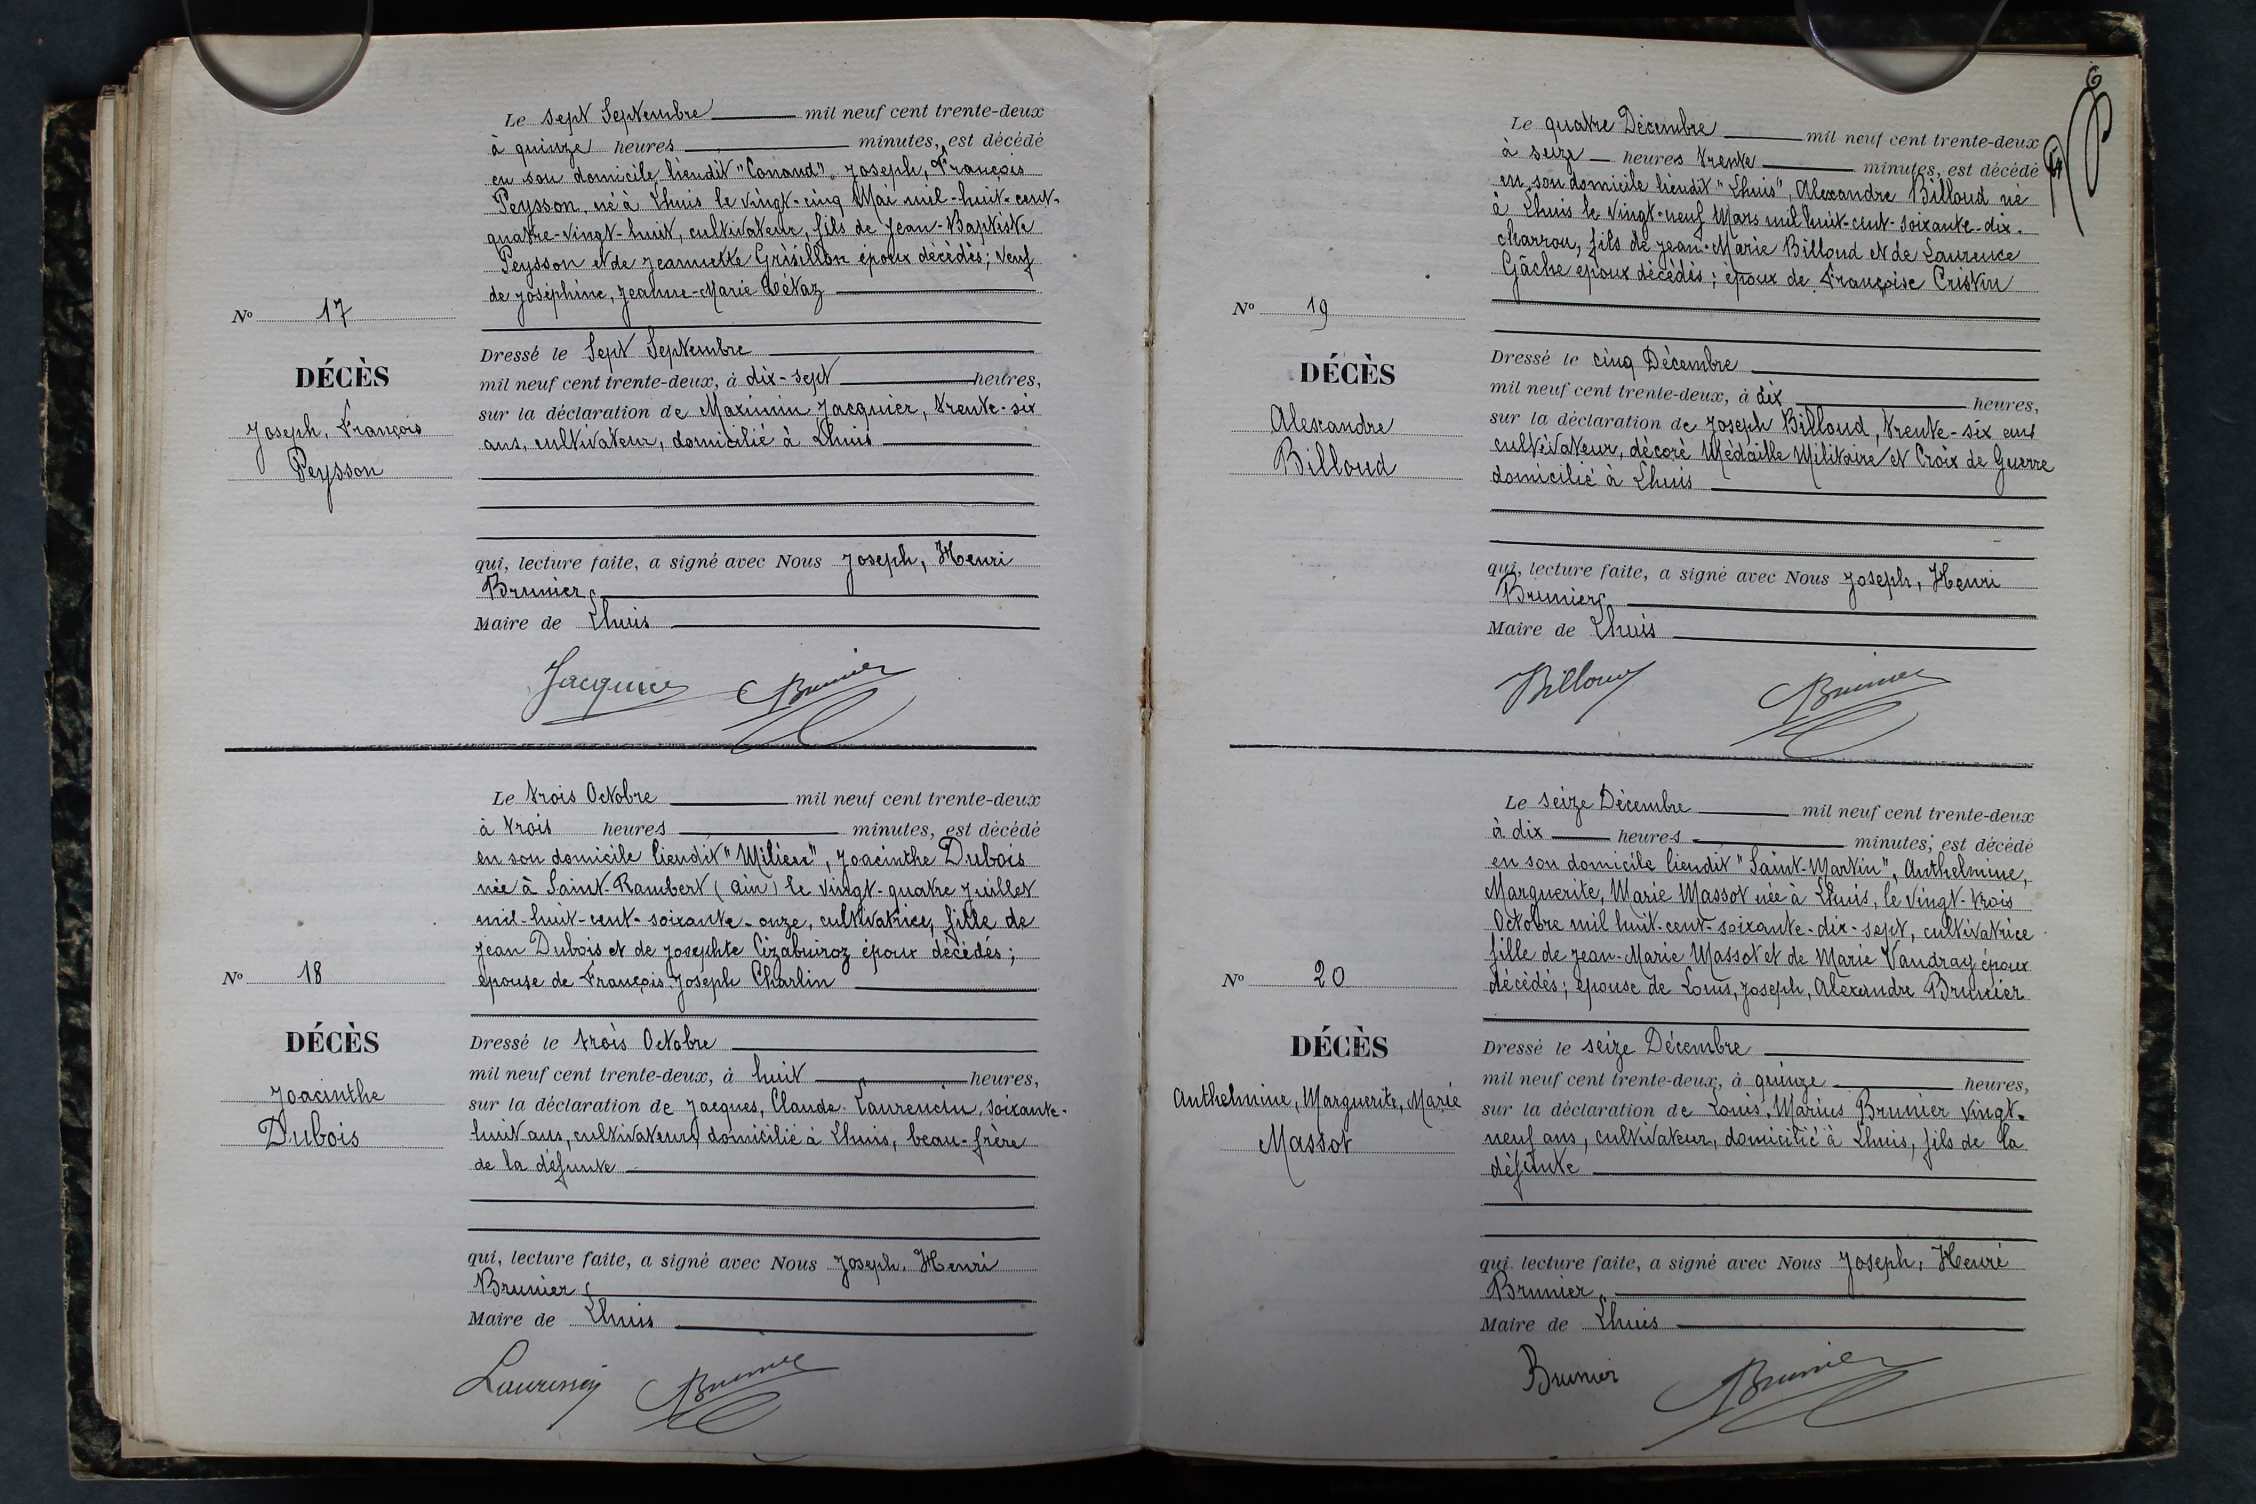 Le sept Septembre mil neuf cent trente-deux
à quinze heures minutes, est décédé
en son domicile lieudit "Conand", Joseph, François
Peysson, né à Lhuis le vingt-cinq Mai mil-huit-cent-
quatre-vingt-huit, cultivateur, fils de Jean-Baptiste
Peysson et de Jeannette Grisillon époux décédés; veuf
de Joséphine, Jeanne-Marie
No 17
DÉCÈS
Joseph, François
Peysson
Dressé le Sept Septembre
mil neuf cent trente-deux, à dix-sept heures,
sur la déclaration de Maximin Jacquier, trente-six
ans, cultivateur, domicilié à Lhuis
qui, lecture faite, a signé avec Nous Joseph, Henri
Brunier
Maire de Lhuis
Jacquier Brunier
Le trois Octobre mil neuf cent trente-deux
à trois heures minutes, est décédé
en son domicile lieudit "Milieu", Joacinthe Dubois
née à Saint-Rambert (Ain) le vingt-quatre Juillet
mil-huit-cent-soixante-onze, cultivatrice, fille de
Jean Dubois et de Josephte époux décédés;
épouse de François Joseph Charlin
No 18
DÉCÈS
Joacinthe
Dubois
Dressé le trois Octobre
mil neuf cent trente-deux, à huit heures,
sur la déclaration de Jacques, Claude Laurencin, soixante-
huit ans, cultivateur, domicilié à Lhuis, beau-frère
de la défunte
qui, lecture faite, a signé avec Nous Joseph, Henri
Brunier
Maire de Lhuis
Laurencin Brunier
Le quatre Décembre mil neuf cent trente-deux
à seize heures trente minutes, est décédé
en son domicile lieudit "Lhuis", Alexandre Billoud né
à Lhuis le vingt-neuf Mars mil huit-cent-soixante-dix.
charron, fils de Jean-Marie Billoud et de Laurence
Gâche époux décédés; époux de Françoise Cristin
No 19
DÉCÈS
Alexandre
Billoud
Dressé le cinq Décembre
mil neuf cent trente-deux, à dix heures,
sur la déclaration de Joseph Billoud, trente-six ans
cultivateur, décoré Médaille Militaire et Croix de Guerre
domicilié à Lhuis
qui, lecture faite, a signé avec Nous Joseph, Henri
Brunier
Maire de Lhuis
Billoud Brunier
Le seize Décembre mil neuf cent trente-deux
à dix heures minutes, est décédé
en son domicile lieudit "Saint-Martin", Anthelmine,
Marguerite, Marie Massot née à Lhuis, le vingt-trois
Octobre mil huit-cent-soixante-dix-sept, cultivatrice
fille de Jean-Marie Massot et de Marie Vandray époux
décédés; épouse de Louis, Joseph, Alexandre Brunier
No 20
DÉCÈS
Anthelmine, Marguerite, Marie
Massot
Dressé le seize Décembre
mil neuf cent trente-deux, à quinze heures,
sur la déclaration de Louis, Marius Brunier vingt-
neuf ans, cultivateur, domicilié à Lhuis, fils de la
défunte
qui, lecture faite, a signé avec Nous Joseph, Henri
Brunier
Maire de Lhuis
Brunier Brunier